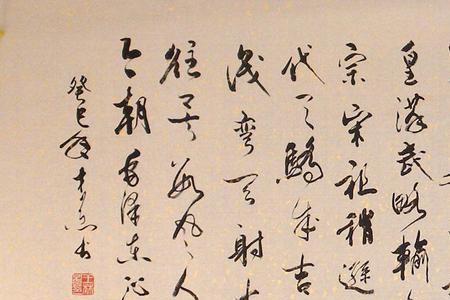 皇漢武略輸
宗宋祖稍遜
代天驕成吉
識彎弓射大
往矣數風流人
今朝 毛澤東詞
癸巳